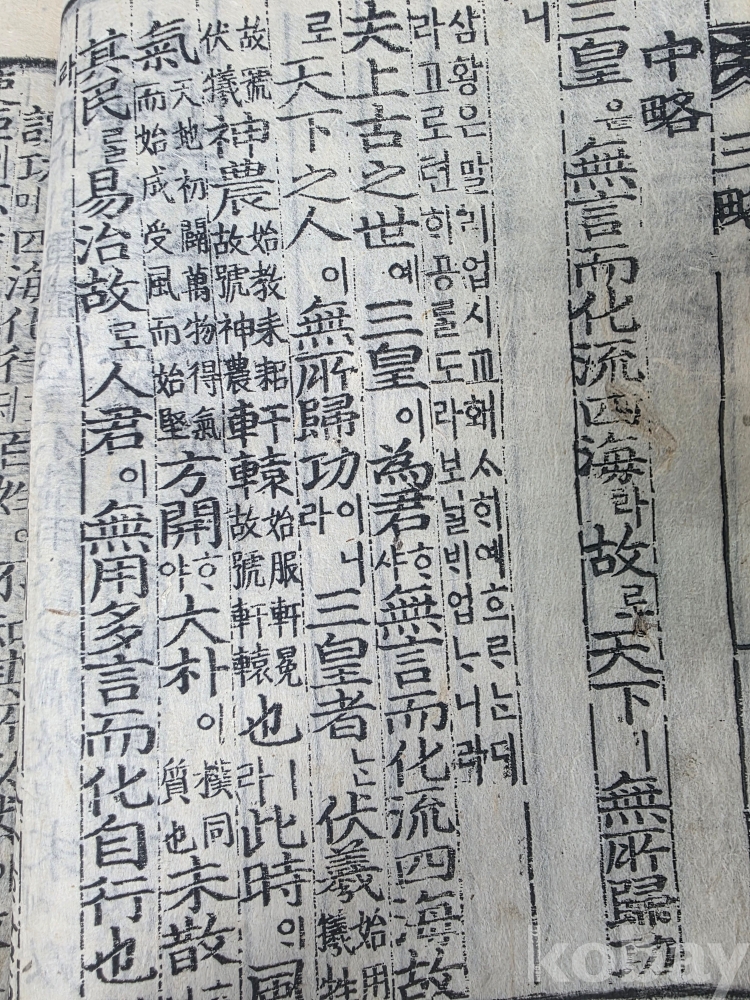 三略
中略
三皇은無言而化流四海라故로天下ㅣ無所歸功
니
삼황은말의업시교홰ᄉᆞᄒᆡ예흐르ᄂᆞᆫ디
라고로텬하공를도라보닐ᄇᆡ업ᄂᆞ니라
夫上古之世예三皇이為君ᄒᆞ샤無言而化流四海故
로天下之人이無所歸功이니라三皇者ᄂᆞᆫ伏羲始用犧牲
故號伏犧神農始教耒耜故號神農軒轅始服軒冕故號軒轅也ㅣ라此時의風
氣天地初闢萬物得氣而始成受風而始堅方開ᄒᆞ야大朴이樸同質也未散
其民를易治故로人君이無用多言而化自行也
라
kobay